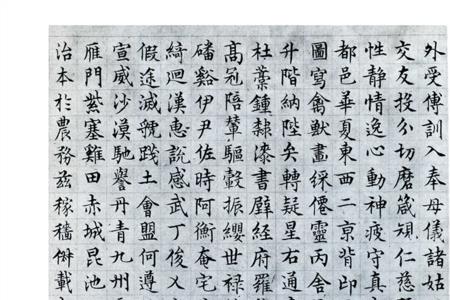 外受傅訓入奉母儀諸姑
交友投分切磨箴規仁慈
性靜情逸心動神疲守真
都邑華夏東西二京背邙
圖寫禽獸畫綵僊靈丙舍
升階納陛弁轉疑星右通
杜稾鍾隸漆書壁經府羅
髙冠陪輦驅轂振纓世禄
磻谿伊尹佐時阿衡奄宅
綺迴漢惠說感武丁俊乂
假途滅虢踐土會盟何遵
宣威沙漠馳譽丹青九州
雁門紫塞雞田赤城昆池
治本於農務兹稼穡俶載